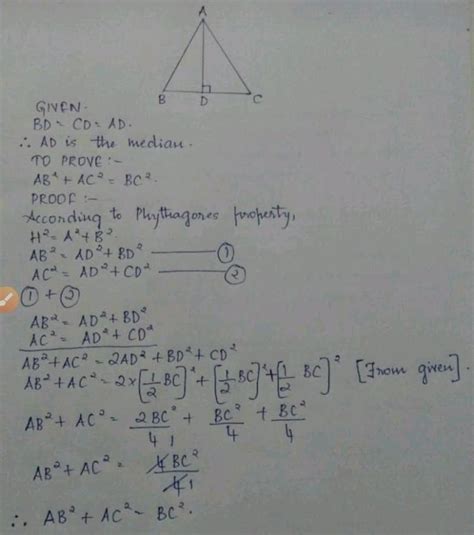 A
B D C
GIVEN.
BD = CD = AD.
∴ AD is the median.
TO PROVE :-
AB² + AC² = BC².
PROOF :-
According to Phythagores property,
H² = A² + B².
AB² = AD² + BD² ——— ①
AC² = AD² + CD² ——— ②
① + ②
AB² = AD² + BD²
AC² = AD² + CD²
AB² + AC² = 2AD² + BD² + CD²
AB² + AC² = 2×[1/2 BC]² + [1/2 BC]² + [1/2 BC]² [From given].
AB² + AC² = 2BC²/4 1 + BC²/4 + BC²/4
AB² + AC² = 4BC²/4 1
∴ AB² + AC² = BC².